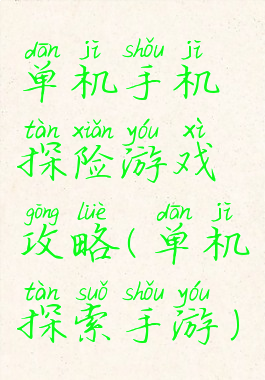 dān jī shǒu jī
单机手机
tàn xiǎn yóu xì
探险游戏
gōng lüè dān jī
攻略(单机
tàn suǒ shǒu yóu
探索手游)